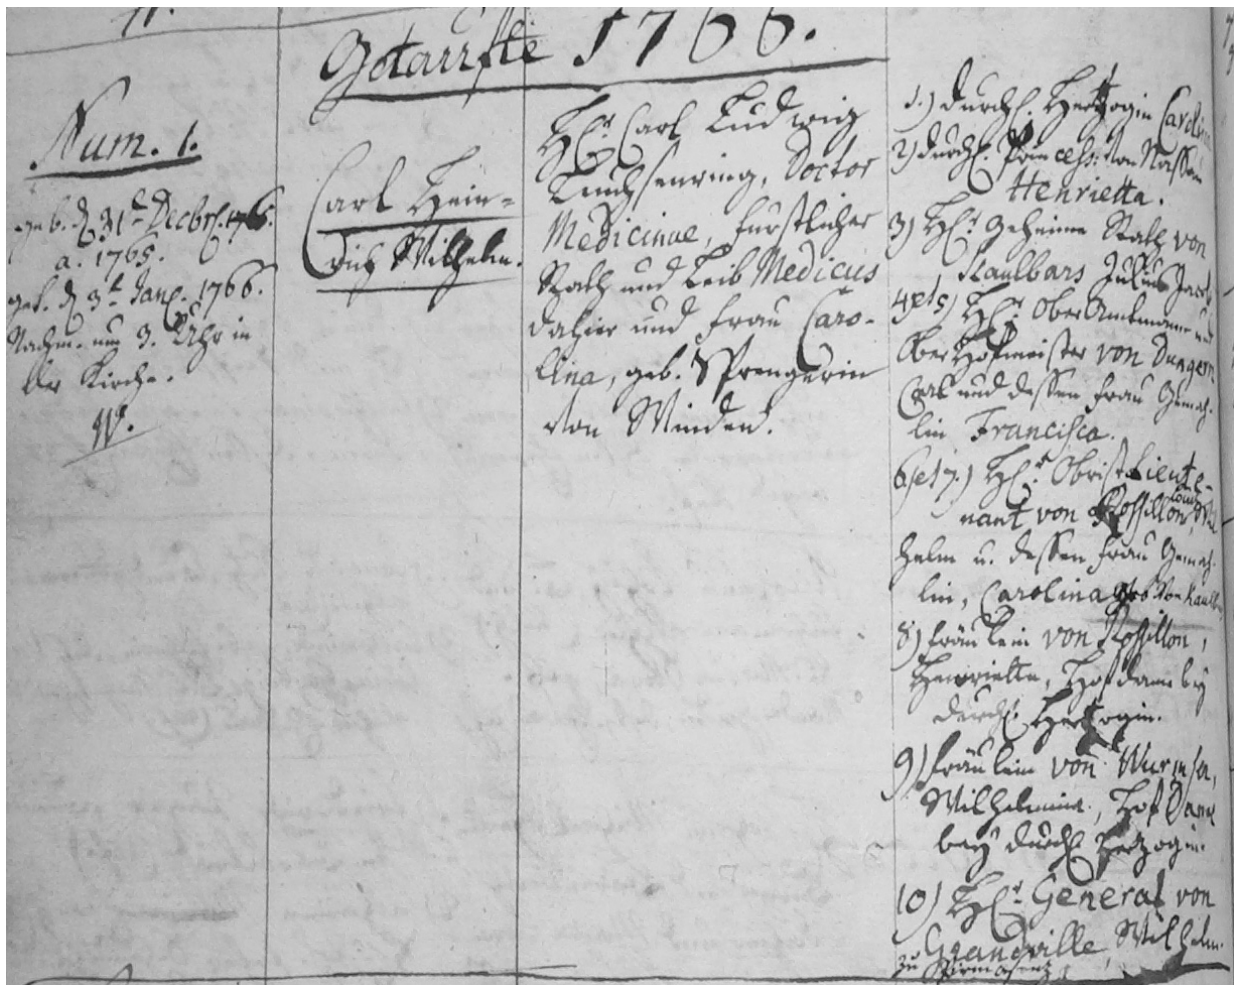 Getauffte 1766.
Num. 1.
geb. d. 31t Decbr. 1765.
a. 1765.
get. d. 3t Jan. 1766.
Nachm. um 3. Uhr in
der Kirche.
Carl Hein-
rich Wilhelm.
Hl.r Carl Ludwig
Leuchsenring, Doctor
Medicinae, fürstlicher
Rath und Leib Medicus
dahier und Frau Caro-
lina, geb. Sprengerin
von Minden.
1.) durchl. Hertzogin Carolin
2) durchl. Princess. von Nassau
Henrietta.
3) Hl.r Geheime Rath von
Kaulbars Julius Jacob
4 et 5) Hl.r Ober Amtmann und
Ober Hofmeister von Dungern
Carl und dessen Frau Gemah-
lin Francisca.
6 et 7.) Hl.r Obrist Lieute-
nant von Rossillon, Wil
helm u. dessen Frau Gemah-
lin, Carolina geb. von Kaulbars
8) Fräulein von Rossillon,
Henriette, Hofdame bey
durchl. Hertzogin.
9) Fräulein von Wurmser,
Wilhelmine, Hof Dame
bey durchl. Hertzogin.
10) Hl.r General von
Grandville, Wilhelm.
zu Pirmasenz